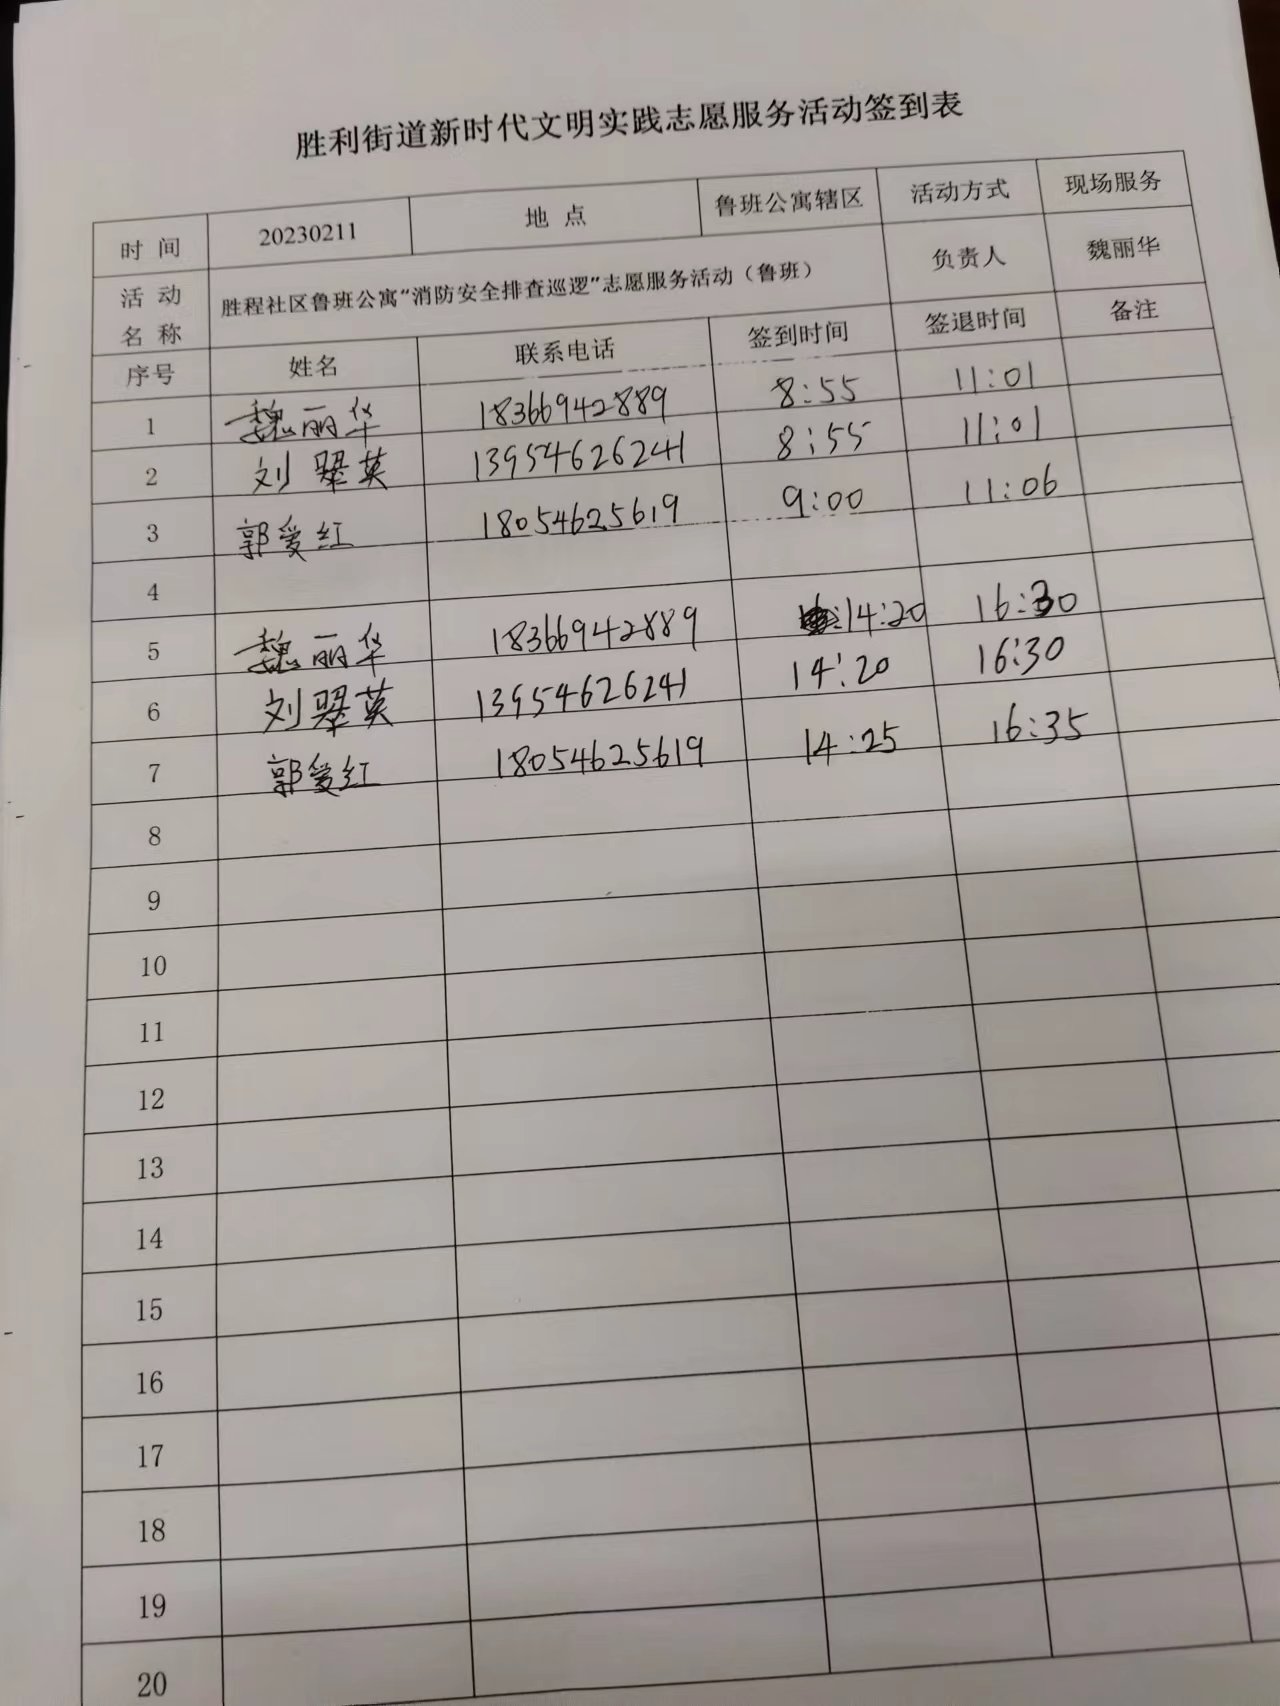 胜利街道新时代文明实践志愿服务活动签到表
时 间 20230211 地 点 鲁班公寓辖区 活动方式 现场服务
活 动 名 称 胜程社区鲁班公寓“消防安全排查巡逻”志愿服务活动（鲁班） 负责人 魏丽华
序号 姓名 联系电话 签到时间 签退时间 备注
1 魏丽华 18366942889 8:55 11:01
2 刘翠英 13954626241 8:55 11:01
3 郭爱红 18054625619 9:00 11:06
4
5 魏丽华 18366942889 14:20 16:30
6 刘翠英 13954626241 14:20 16:30
7 郭爱红 18054625619 14:25 16:35
8
9
10
11
12
13
14
15
16
17
18
19
20